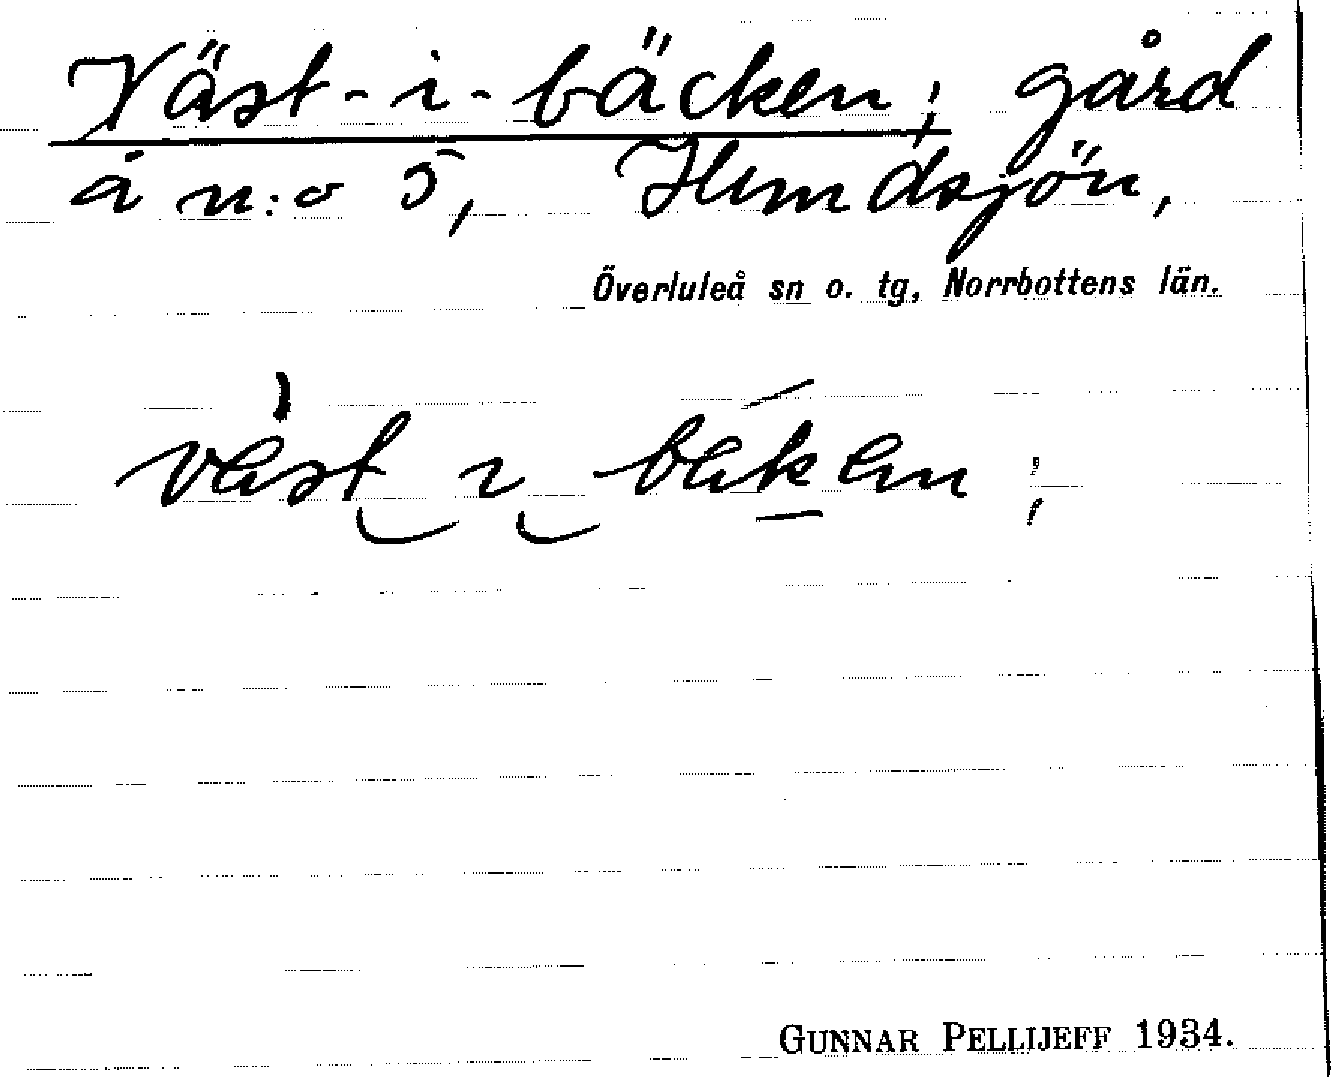 Väst-i-bäcken; gård
å n:o 5, Hundsjön,
Överluleå sn o. tg, Norrbottens län.
væst ı bækæn;
GUNNAR PELLIJEFF 1934.